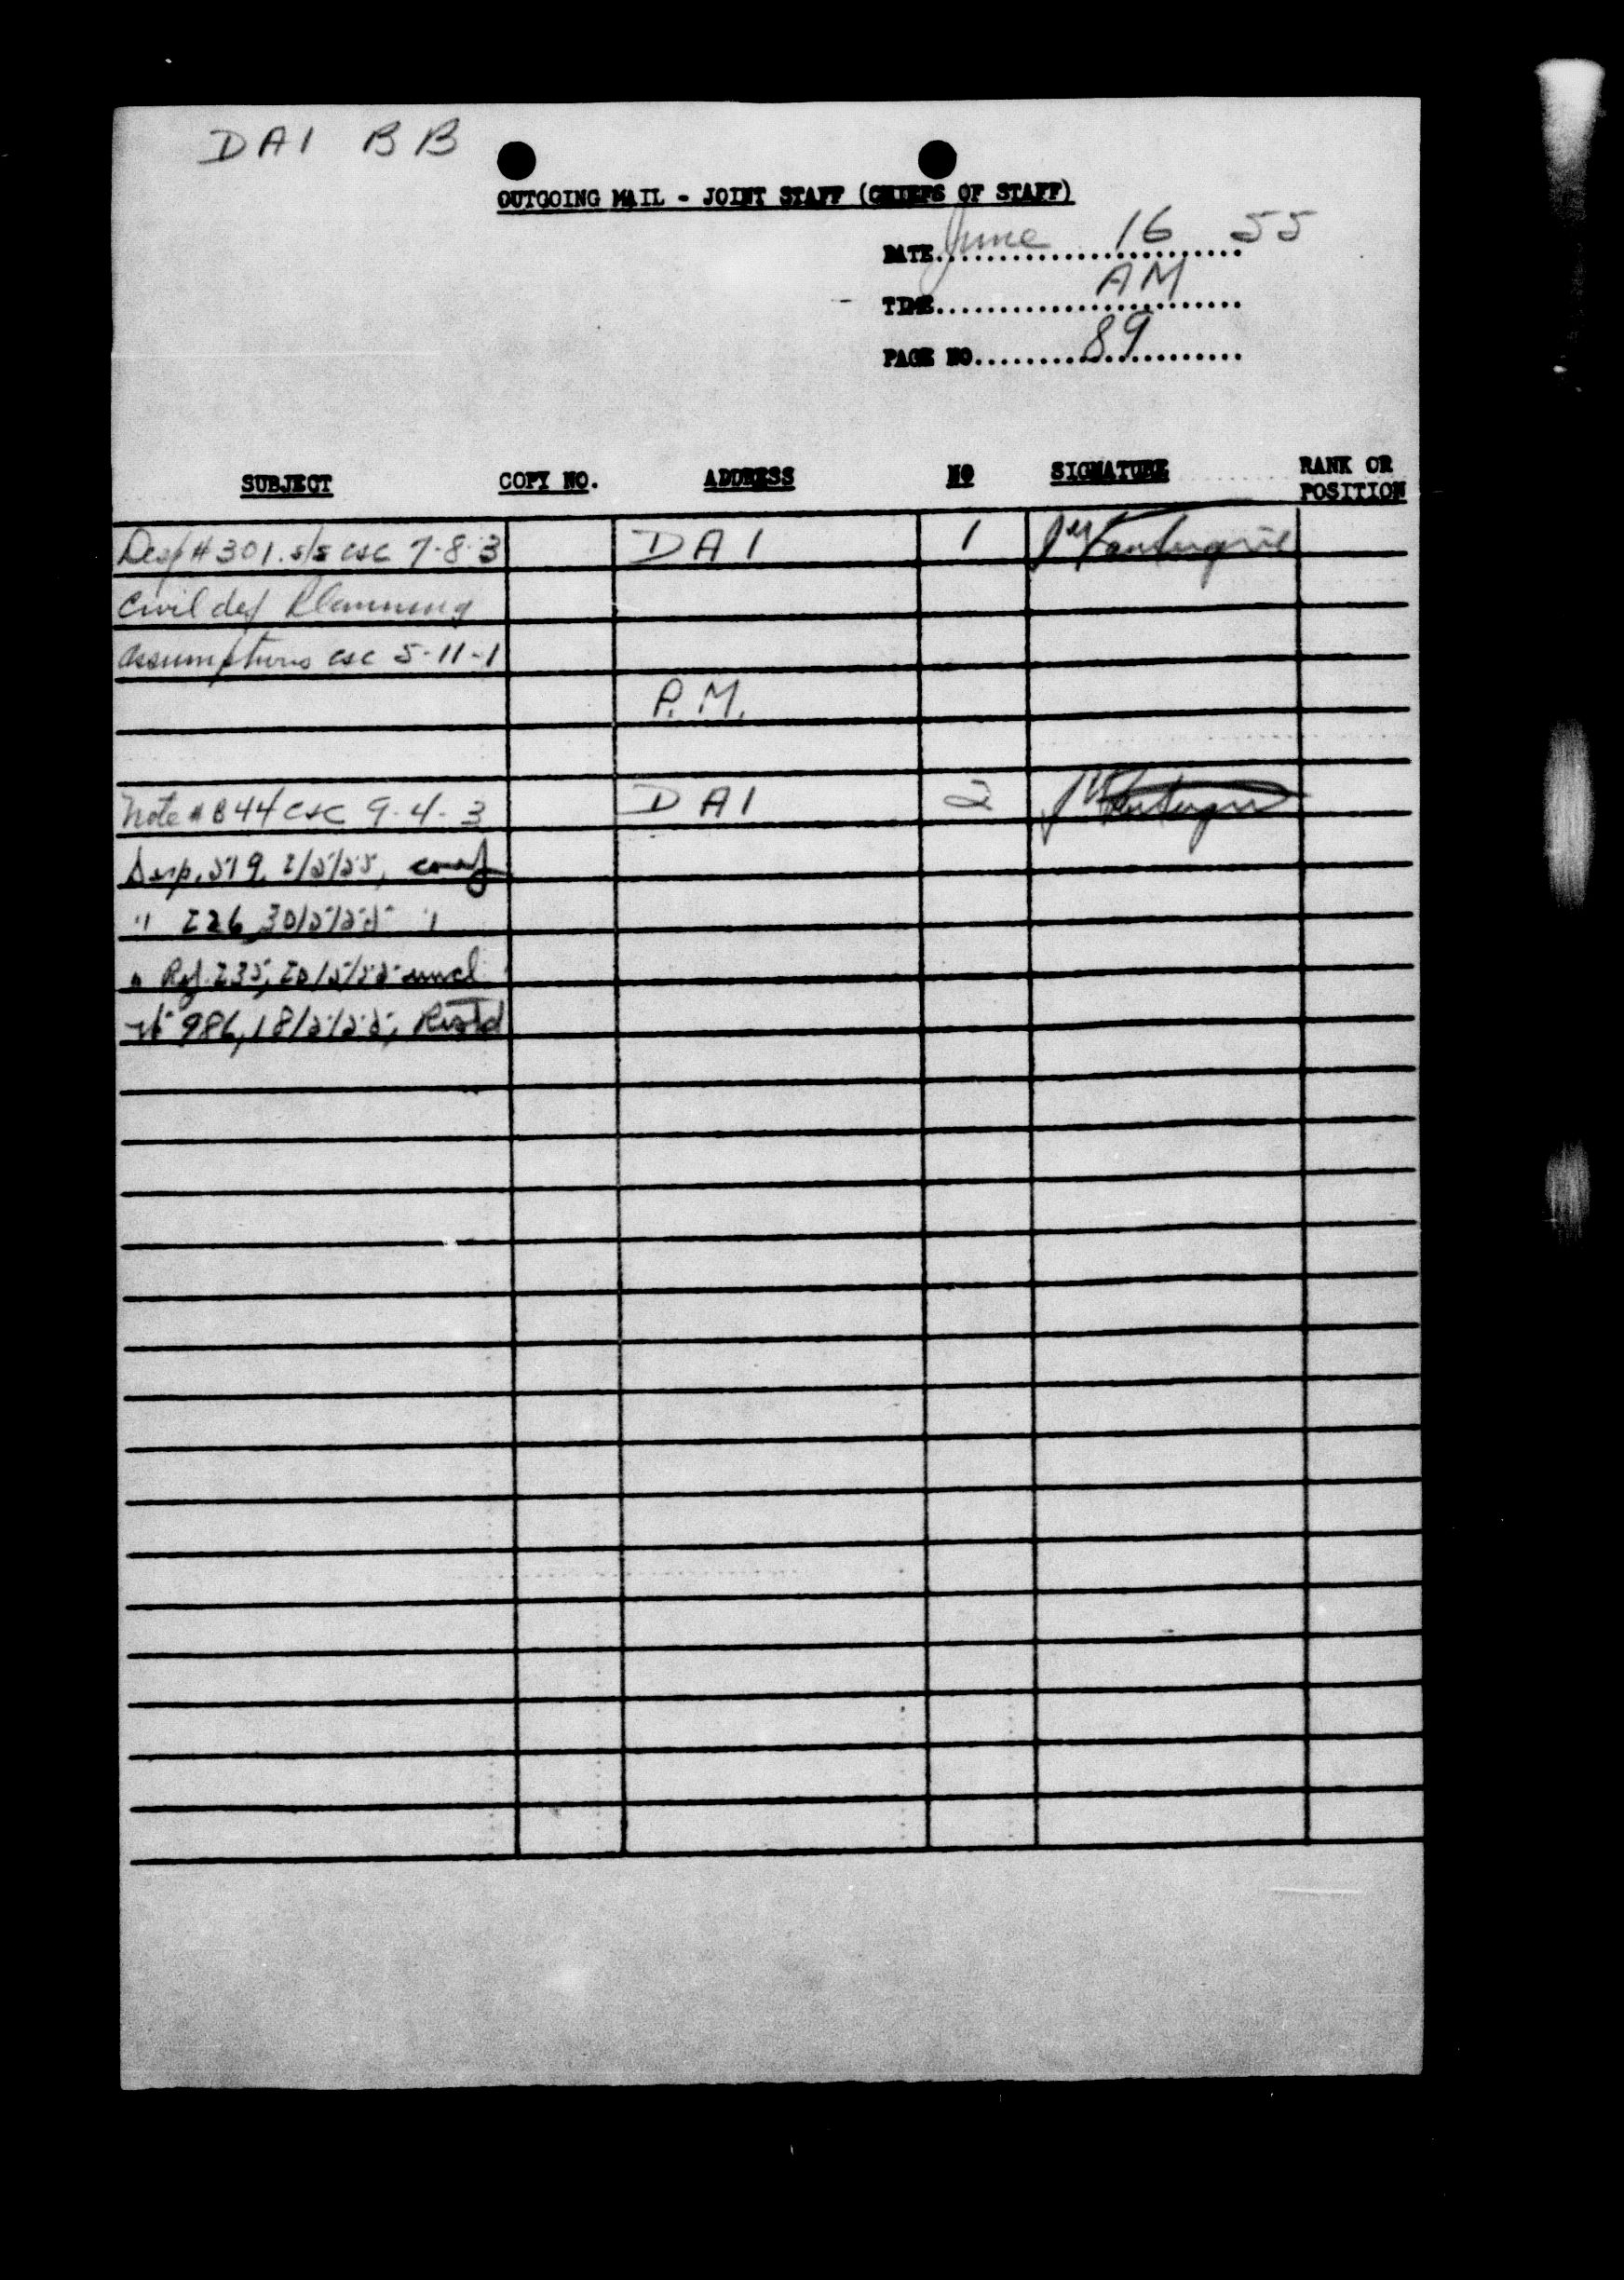 DAI BB
OUTGOING MAIL - JOINT STAFF (CHIEFS OF STAFF)
DATE June 16 55
TIME AM
PAGE NO 89
SUBJECT COPY NO. ADDRESS NO SIGNATURE RANK OR POSITION
Desp # 301. s/s csc 7-8-3 DAI 1
Civil def Planning
assumptions csc 5-11-1
P.M.
Note # B44 csc 9-4-3 DAI 2
Desp. 519, 2/5/55, conf
" 226 30/5/55 "
" Ref. 235, 20/5/55 uncl
986, 18/5/55, Rest'd